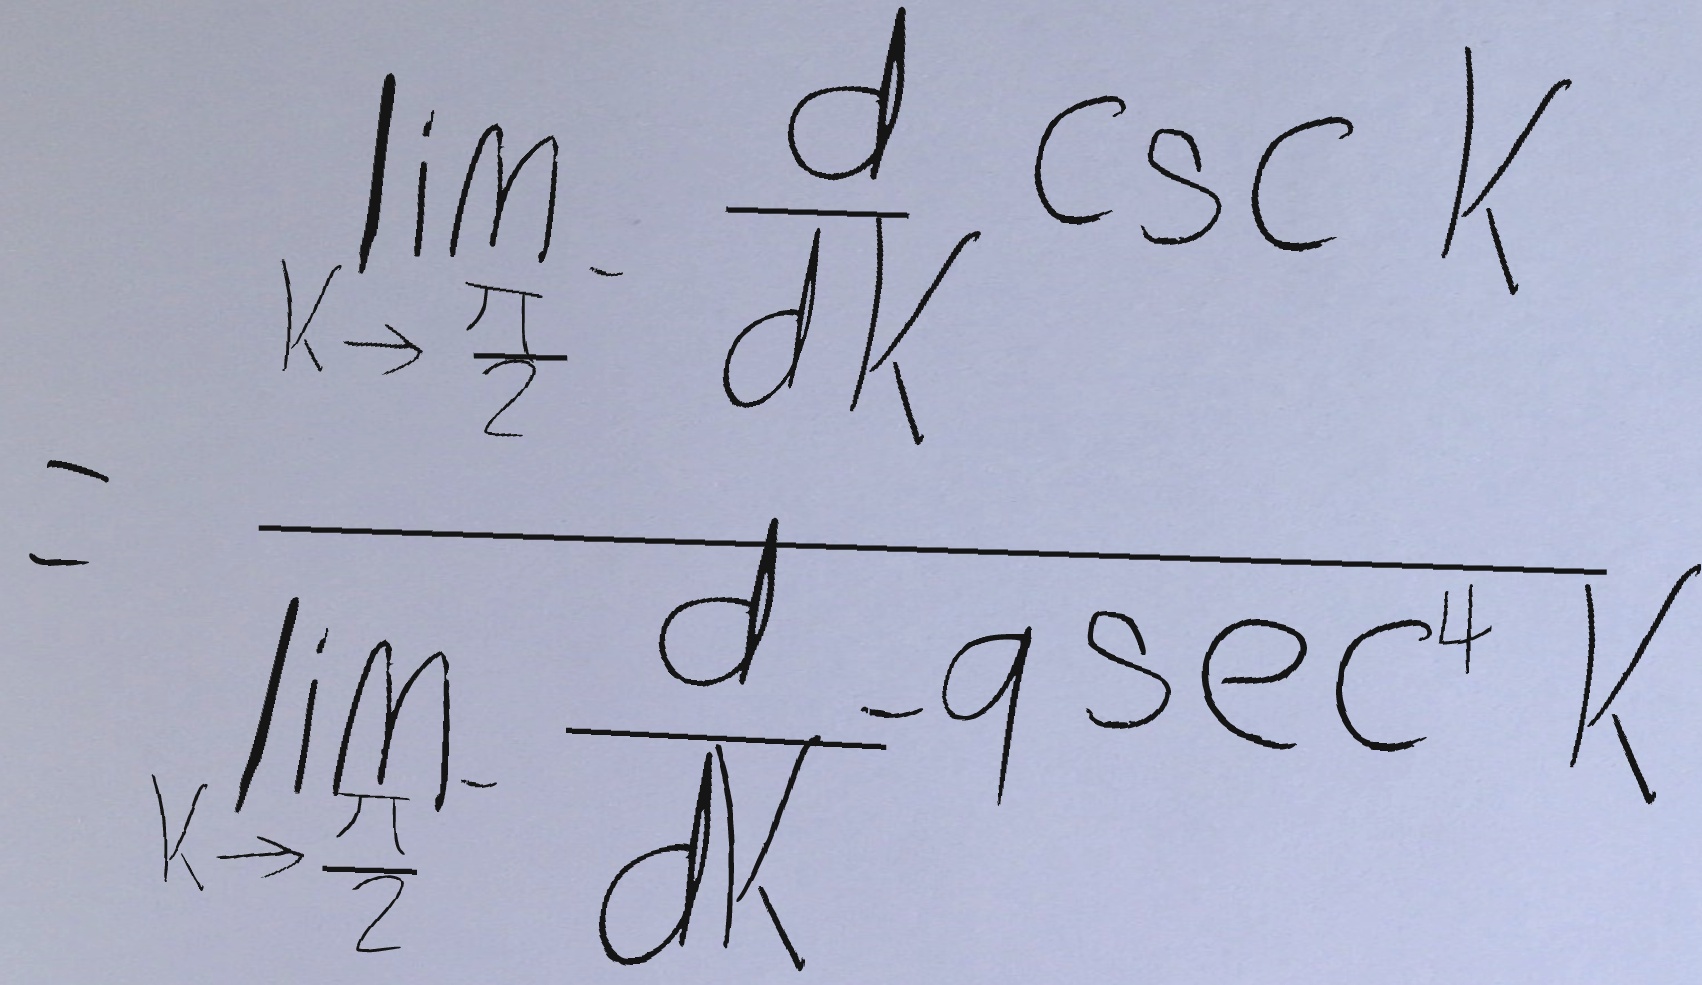 = \frac{\lim_{k \to \frac{\pi}{2}^-} \frac{d}{dk} \csc k}{\lim_{k \to \frac{\pi}{2}^-} \frac{d}{dk} -9 \sec^4 k}